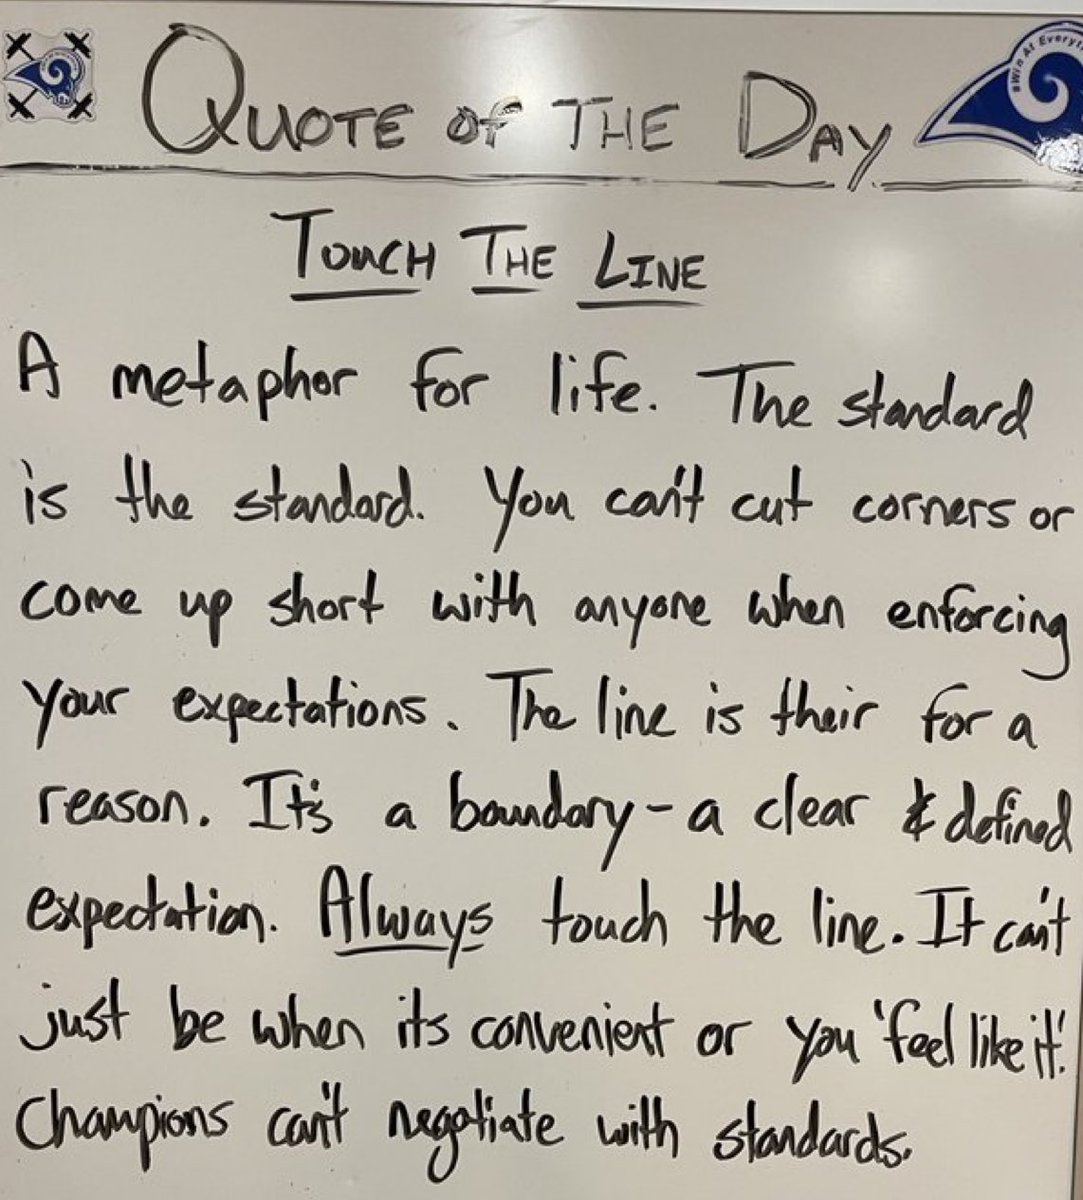 QUOTE OF THE DAY
#Win At Everyt
TOUCH THE LINE
A metaphor for life. The standard
is the standard. You can't cut corners or
come up short with anyone when enforcing
your expectations. The line is their for a
reason. It's a boundary - a clear & defined
expectation. Always touch the line. It can't
just be when its convenient or you 'feel like it'.
Champions can't negotiate with standards.